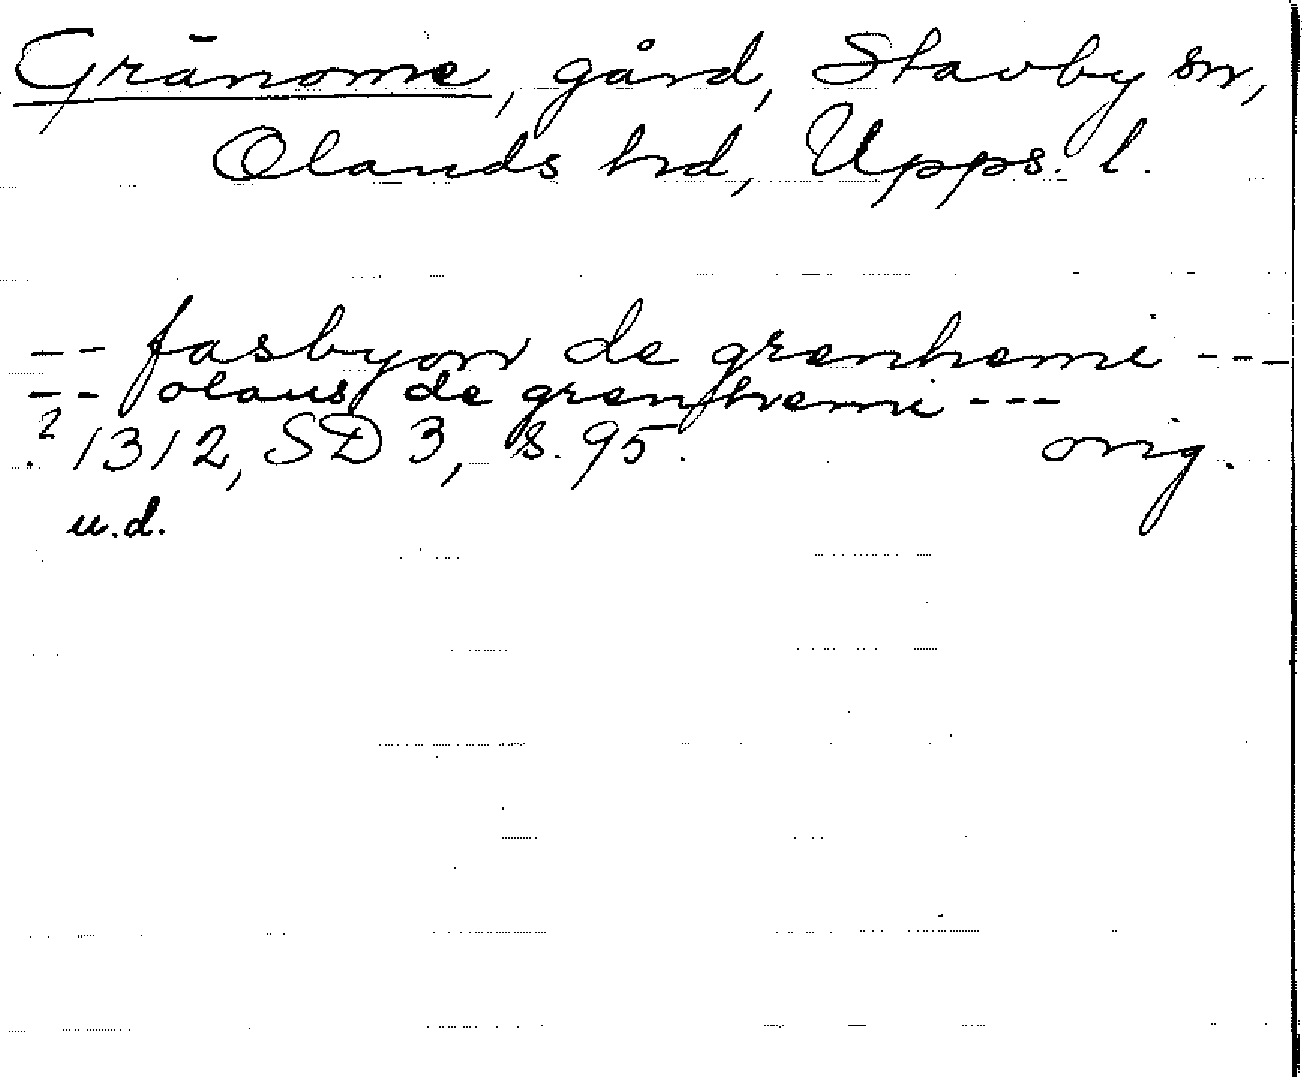 Gränome, gård, Stavby sn,
Olands hd, Upps. l.
-- fasbyorn de grenhemi ---
-- olaus de grenhemi ---
? 1312, SD 3, s. 95. orig.
u.d.